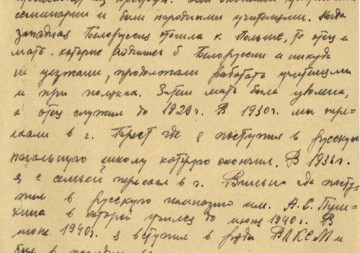 семинарии и были народными учителями. Когда
западная Белоруссия отошла к Польше, то отец и
мать, которые родились в Белоруссии и никуда
не уезжали, продолжали работать учителями
и при поляках. Затем мать была уволена,
а отец служил до 1929 г. В 1930 г. мы пере-
ехали в г. Брест где я поступил в русскую
начальную школу которую окончил. В 1936 г.
я с семьей переехал в г. Вильно где посту-
пил в русскую гимназию им. А.С. Пуш-
кина в которой учился до июня 1940 г. В
июне 1940 г. я вступил в ряды ВЛКСМ и